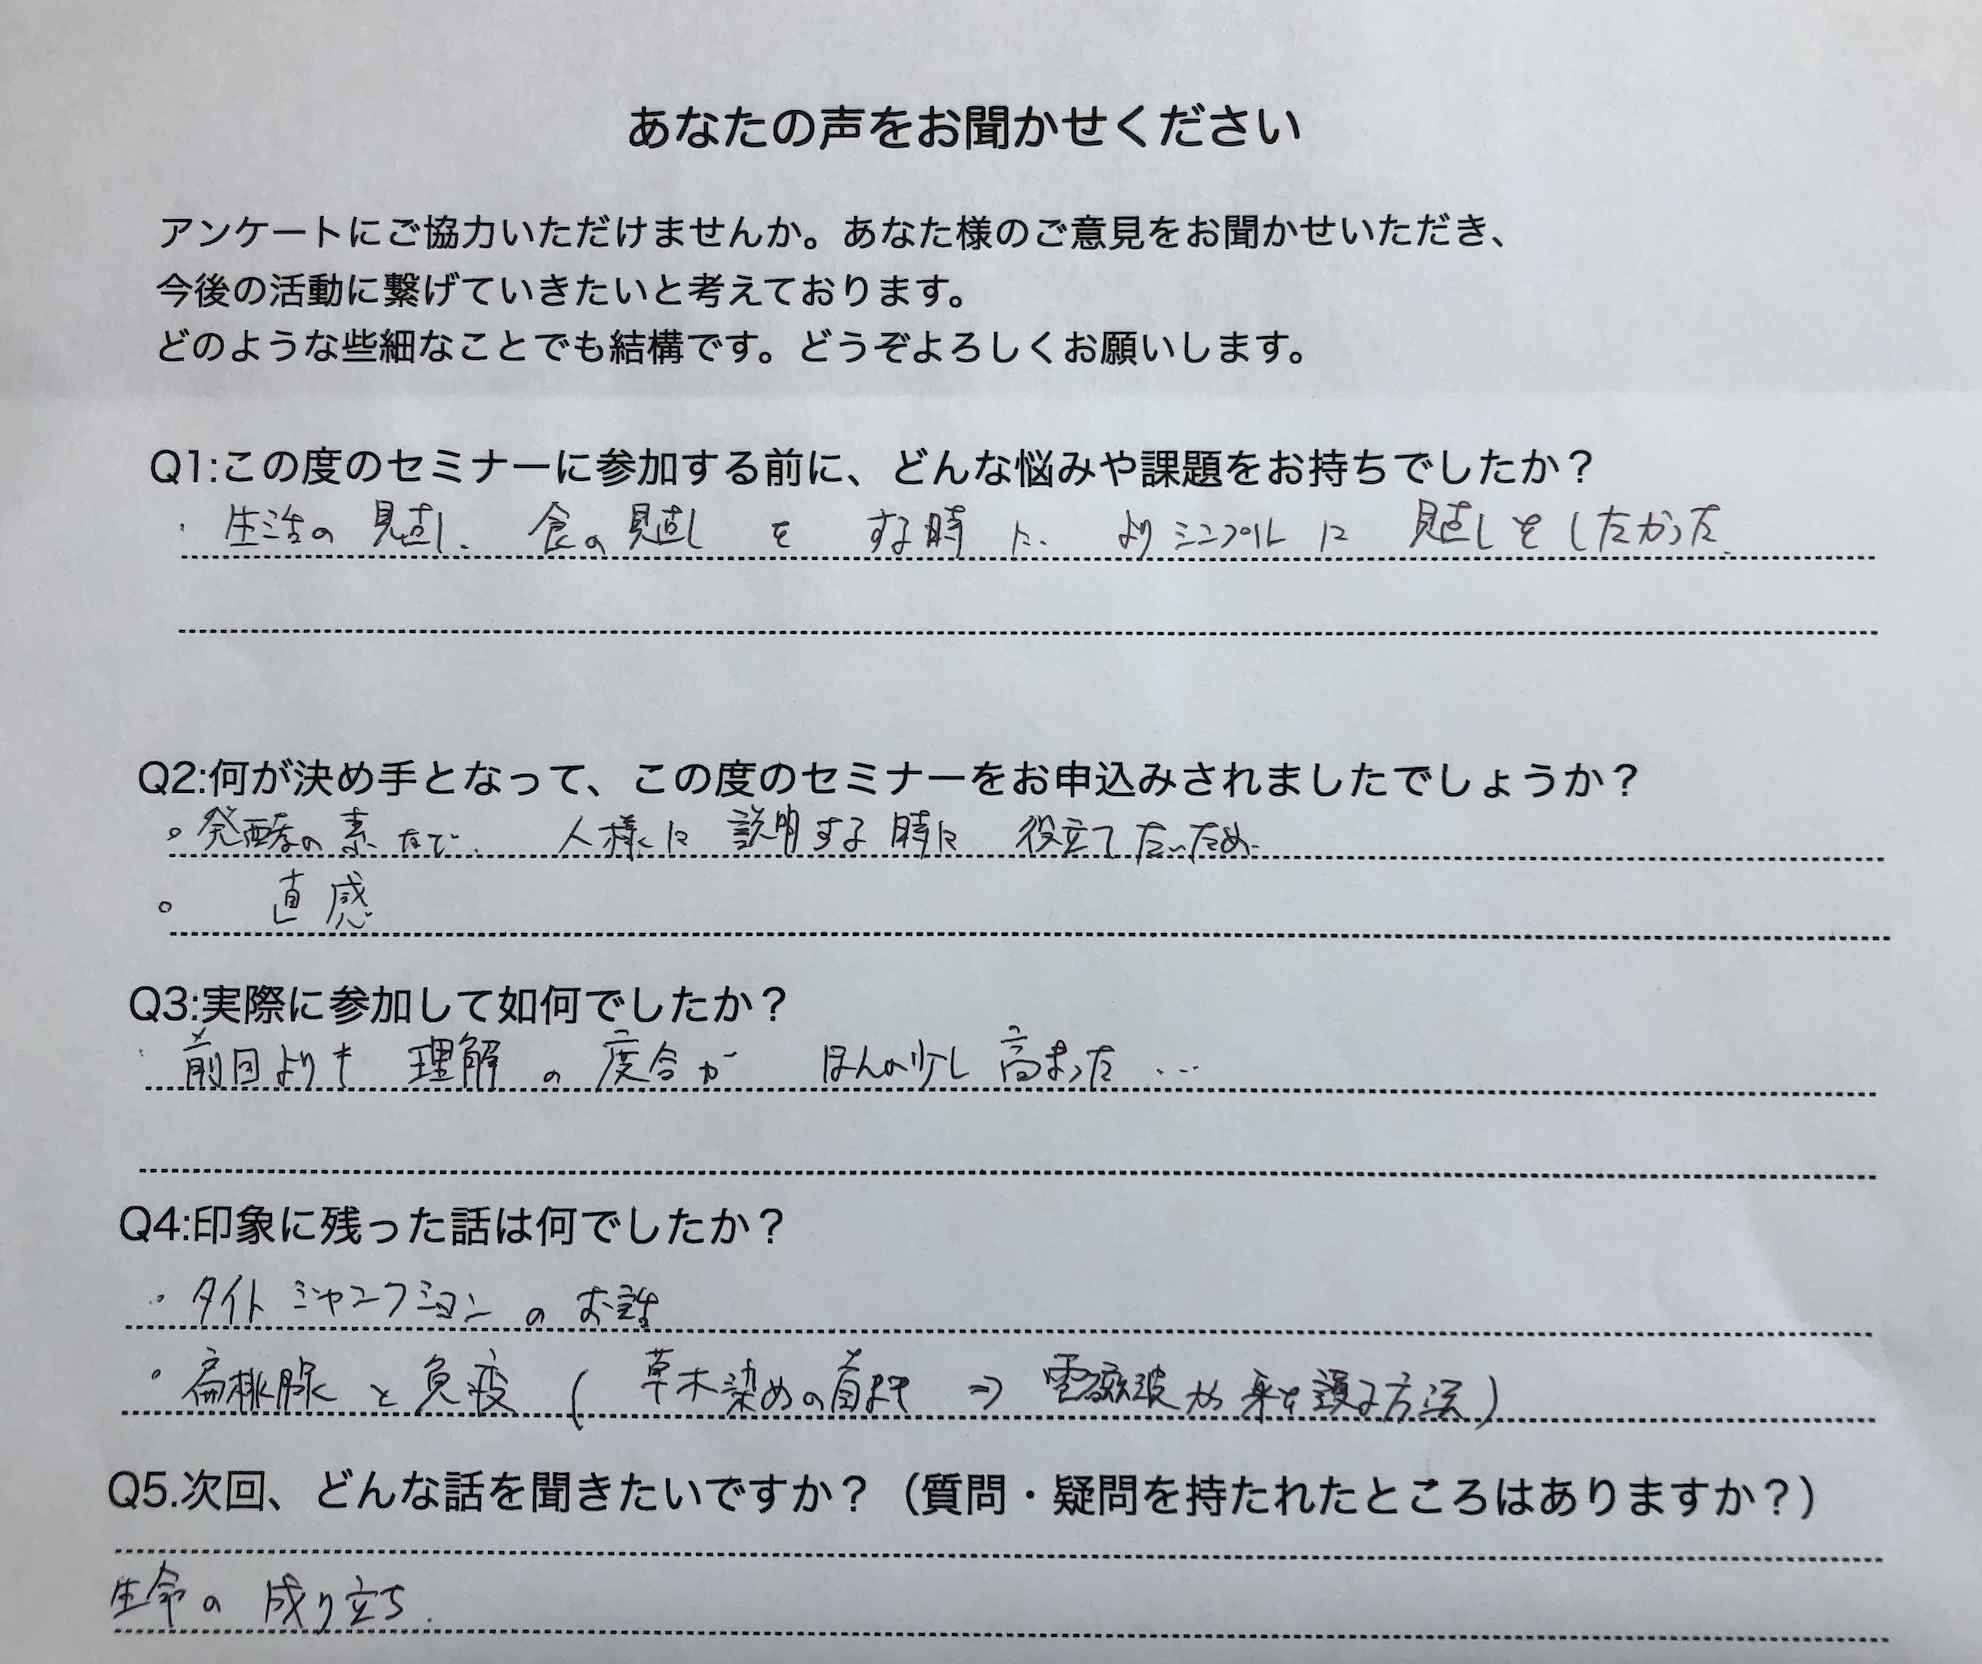 あなたの声をお聞かせください
アンケートにご協力いただけませんか。あなた様のご意見をお聞かせいただき、
今後の活動に繋げていきたいと考えております。
どのような些細なことでも結構です。どうぞよろしくお願いします。
Q1:この度のセミナーに参加する前に、どんな悩みや課題をお持ちでしたか？
・生活の見直し、食の見直しをする時に、よりシンプルに見直しをしたかった。
Q2:何が決め手となって、この度のセミナーをお申込みされましたでしょうか？
。発酵の素などで、人様に説明する時に役立てたいため
。直感
Q3:実際に参加して如何でしたか？
・前回よりも理解の度合がほんの少し高まった…
Q4:印象に残った話は何でしたか？
・タイトジャンクションのお話
・扁桃腺と免疫(草木染めの ⇒ 電磁波から身を護る方法)
Q5.次回、どんな話を聞きたいですか？（質問・疑問を持たれたところはありますか？）
生命の成り立ち.